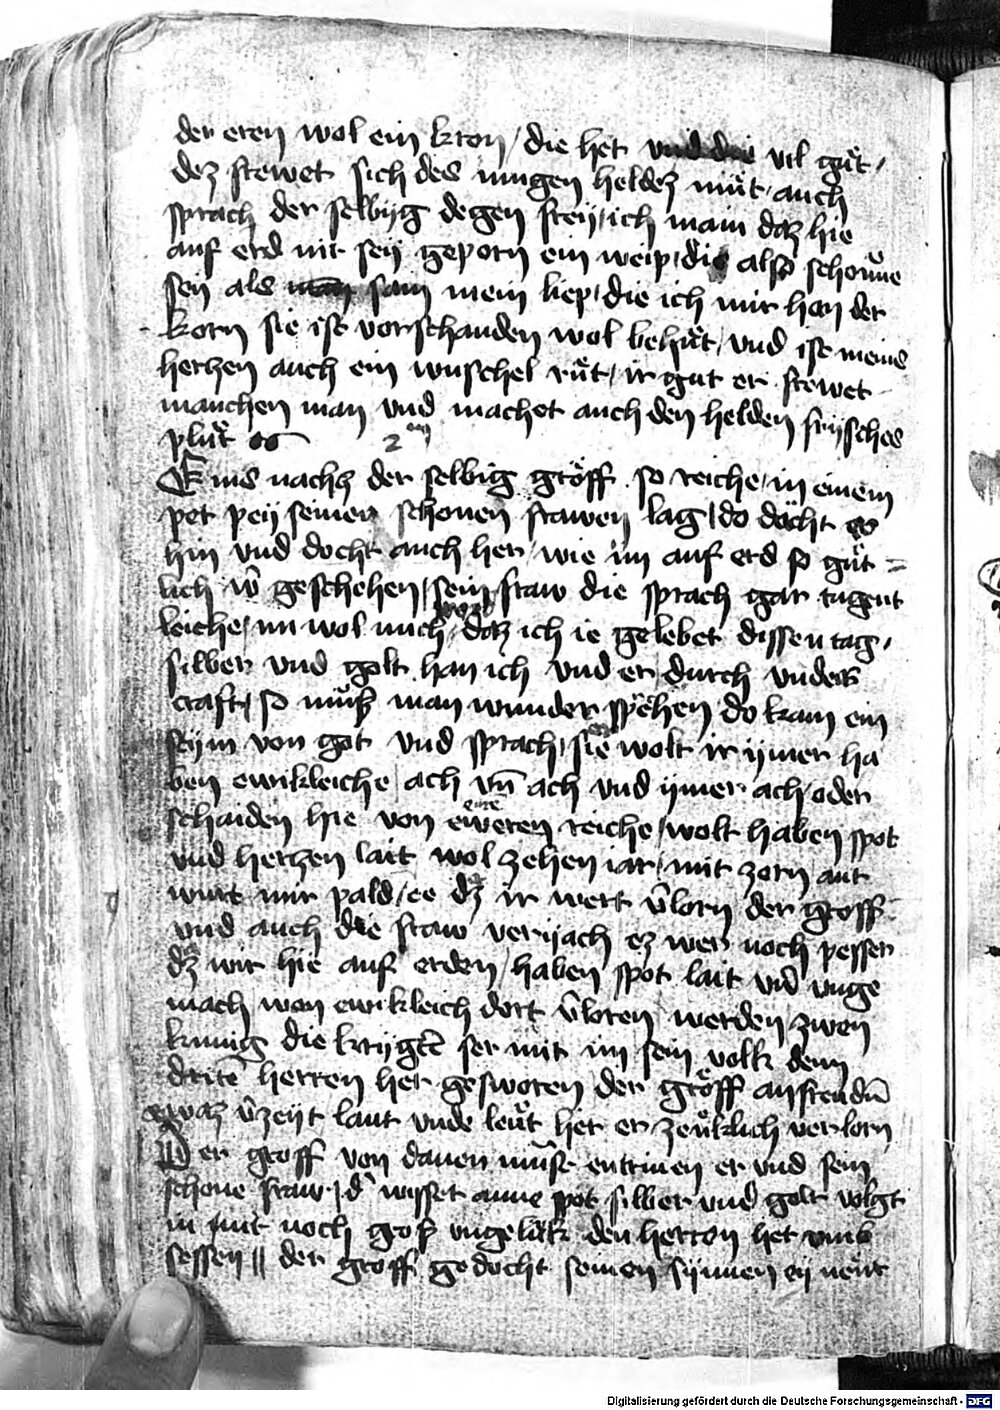 der eren wol ein kron / die het und die vil gůt /
dez frewet sich des iungen heldez můt / auch
sprach der selbyg degen frey / ich main daz hie
auf erd nit sey geporn ein weip / die also schonͤe
sey als sam mein liep / die ich mir han der
korn sie ist vor schanden wol behuͤt / vnd ist meins
herczen auch ein wuschel ruͤt / ir gut er frewet
manchen man vnd machet auch den helden frysches
pluͤt
Eins nachcz der selbig groͤff so reiche / in einem
pet pey seiner schonen frawen lag / do docht er
hin vnd docht auch her / wie im auf erd so guͤt =
lich w̄ geschehen / sein fraw die sprach gar tugent
leiche / nu wol mich / daz ich ie gelebet dissen tag /
silber vnd golt han ich vnd er durch vnders
craft / so muͤß man wunder spehen / do kam ein
stym von got vnd sprach / sie wolt ir ymer ha
ben ewikleiche / ach vn̄ ach vnd ymer ach / oder
schaiden hie von eweren reiche / wolt haben spot
vnd herczen lait wol zehen iar / mit zorn ant
wurt mir pald / ee dz ir wert v̄lorn der groff
vnd auch die fraw veriach ez wer noch pesser
dz wir hie auf erden / haben spot lait vn̄ vnge
mach wen ewikleich dort v̄loren werden / zwen
kunig die krygtē ser mit im sein volk dem
dritē herren her gesworen der groͤff
v̄zeyt laut vnde leuͤt het er verlorn
Der groff von danen muͤst entrinen er vnd sein
schone fraw / d' wisset anne pot silber vnd golt volgt
in mit noch groß vngeluͤk den herron het vmb
sessen || der groff gedocht seinen synnen ey